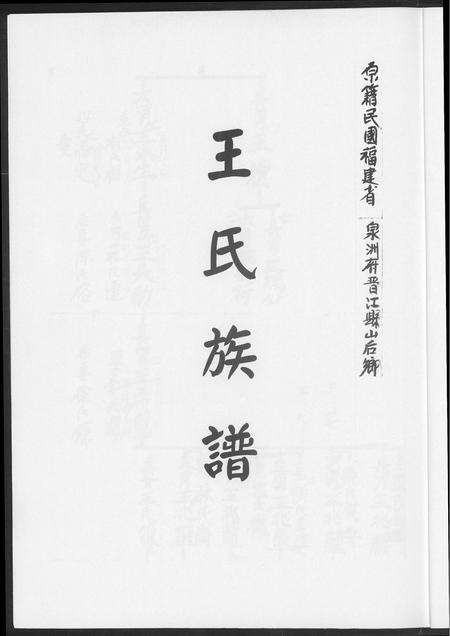 原籍民國福建省 泉洲府晋江縣山后鄉
王氏族譜